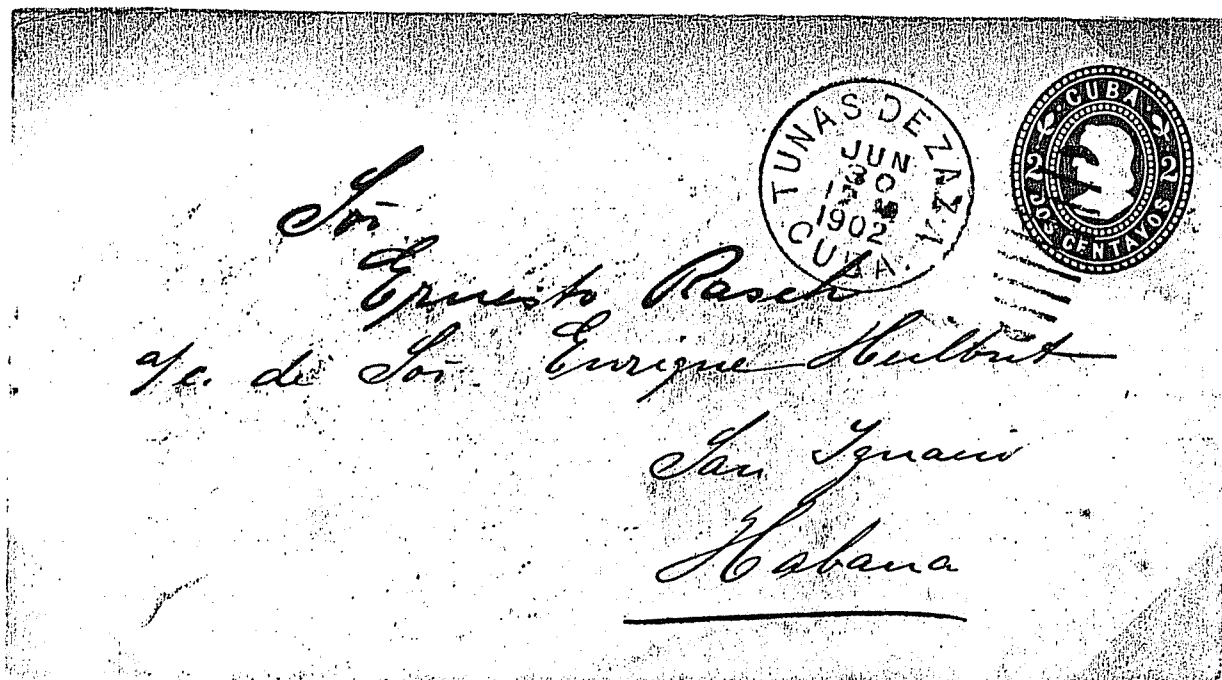 TUNAS DE ZAZA
JUN
1902
CUBA.
CUBA
2 2
DOS CENTAVOS
Sor
Ernesto Rasch
a/c. de Sor. Enrique Hulbut
San Ignacio
Habana